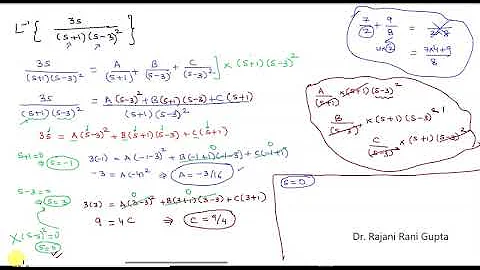 L⁻¹ { 3s / (s+1)(s-3)² }
3s / (s+1)(s-3)² = A/(s+1) + B/(s-3) + C/(s-3)² ] × (s+1)(s-3)²
3s / (s+1)(s-3)² = A(s-3)² + B(s+1)(s-3) + C(s+1) / (s+1)(s-3)²
3s = A(s-3)² + B(s+1)(s-3) + C(s+1)
s+1=0 s=-1
3(-1) = A(-1-3)² + B(-1+1)(-1-3) + C(-1+1)
-3 = A(-4)² ⇒ A = -3/16
s-3=0 s=3
3(3) = A(3-3)² + B(3+1)(3-3) + C(3+1)
9 = 4C ⇒ C = 9/4
X (s-3)²=0
7/2 + 9/8
= 7×4+9 / 8
A/(s+1) × (s+1)(s-3)²
B/(s-3) × (s+1)(s-3)²
C/(s-3)² × (s+1)(s-3)²
s=0
Dr. Rajani Rani Gupta